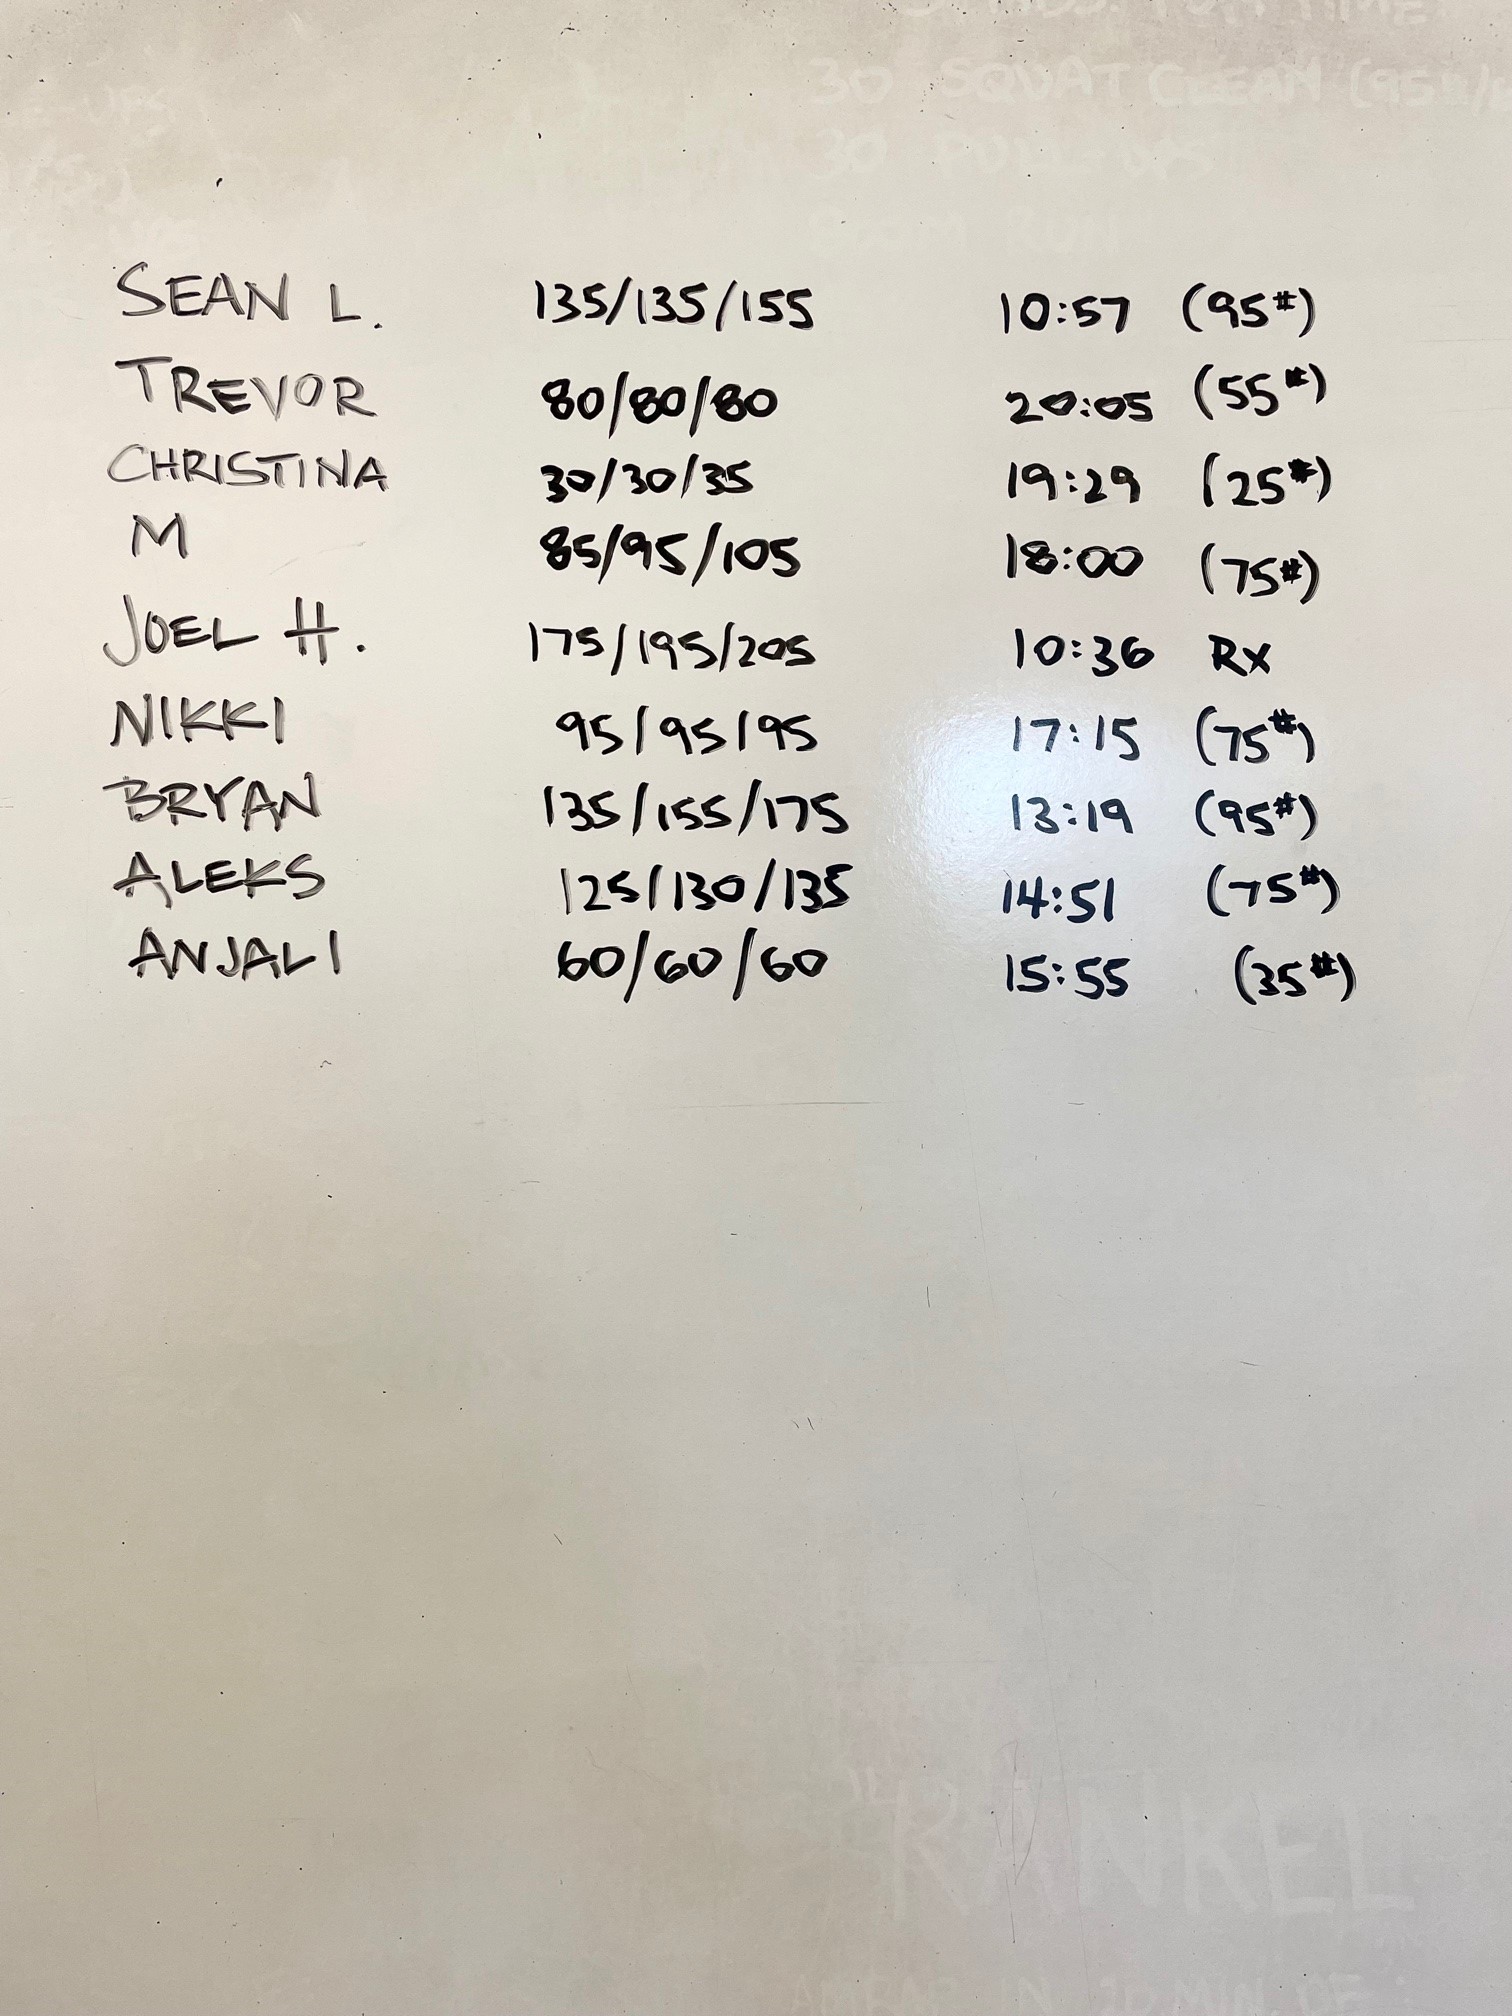 30 SQUAT CLEAN (95
30 PULL-UPS
SEAN L. 135/135/155 10:57 (95#)
TREVOR 80/80/80 20:05 (55#)
CHRISTINA 30/30/35 19:29 (25#)
M 85/95/105 18:00 (75#)
JOEL H. 175/195/205 10:36 Rx
NIKKI 95/95/95 17:15 (75#)
BRYAN 135/155/175 13:19 (95#)
ALEKS 125/130/135 14:51 (75#)
ANJALI 60/60/60 15:55 (35#)
"RANKEL
AMRAP IN 20 MIN OF: